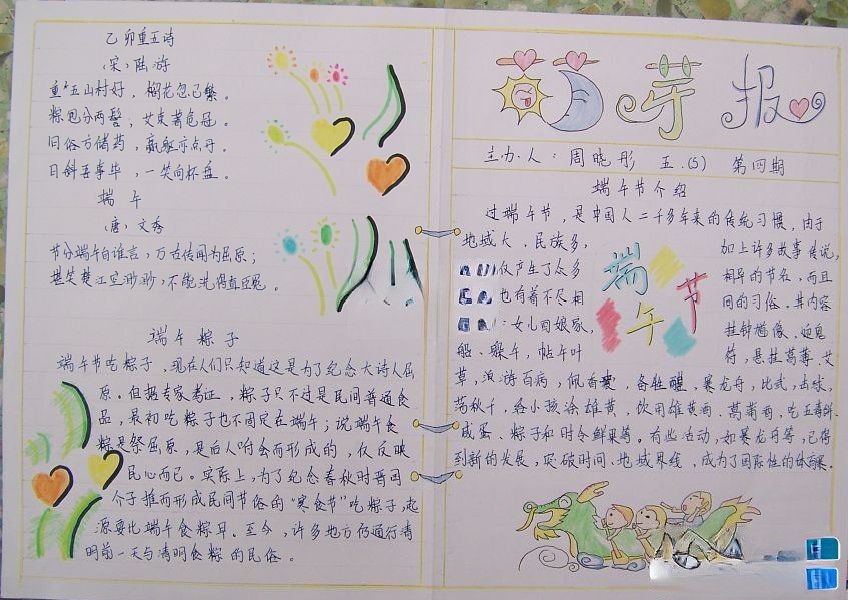 乙卯重五诗
（宋）陆游
重五山村好，榴花忽已繁。
粽包分两髻，艾束著危冠。
旧俗方储药，羸躯亦点丹。
日斜吾事毕，一笑向杯盘。
端午
（唐）文秀
节分端午自谁言，万古传闻为屈原；
堪笑楚江空渺渺，不能洗得直臣冤。
端午粽子
端午节吃粽子，现在人们只知道这是为了纪念大诗人屈
原。但据专家考证，粽子只不过是民间普通食
品，最初吃粽子也不固定在端午；说端午食
粽是祭屈原，是后人附会而形成的，仅反映
民心而已。实际上，为了纪念春秋时晋国
介子推而形成民间节俗的“寒食节”吃粽子，起
源要比端午食粽早。至今，许多地方仍通行清
明前一天与清明食粽的民俗。
芽报
主办人：周晓彤 五.(5) 第四期
端午节介绍
过端午节，是中国人二千多年来的传统习惯，由于
地域大，民族多，加上许多故事传说，
仅产生了众多相异的节名，而且
也有着不尽相同的习俗。其内容
：女儿回娘家，挂钟馗像、迎鬼
船、躲午，帖午叶符，悬挂菖蒲、艾
草，游百病，佩香囊，备牲醴，赛龙舟，比武，击球，
荡秋千，给小孩涂雄黄，饮用雄黄酒、菖蒲酒，吃五毒饼、
咸蛋、粽子和时令鲜果等。有些活动，如赛龙舟等，已得
到新的发展，突破时间、地域界线，成为了国际性的体育赛。
端午节